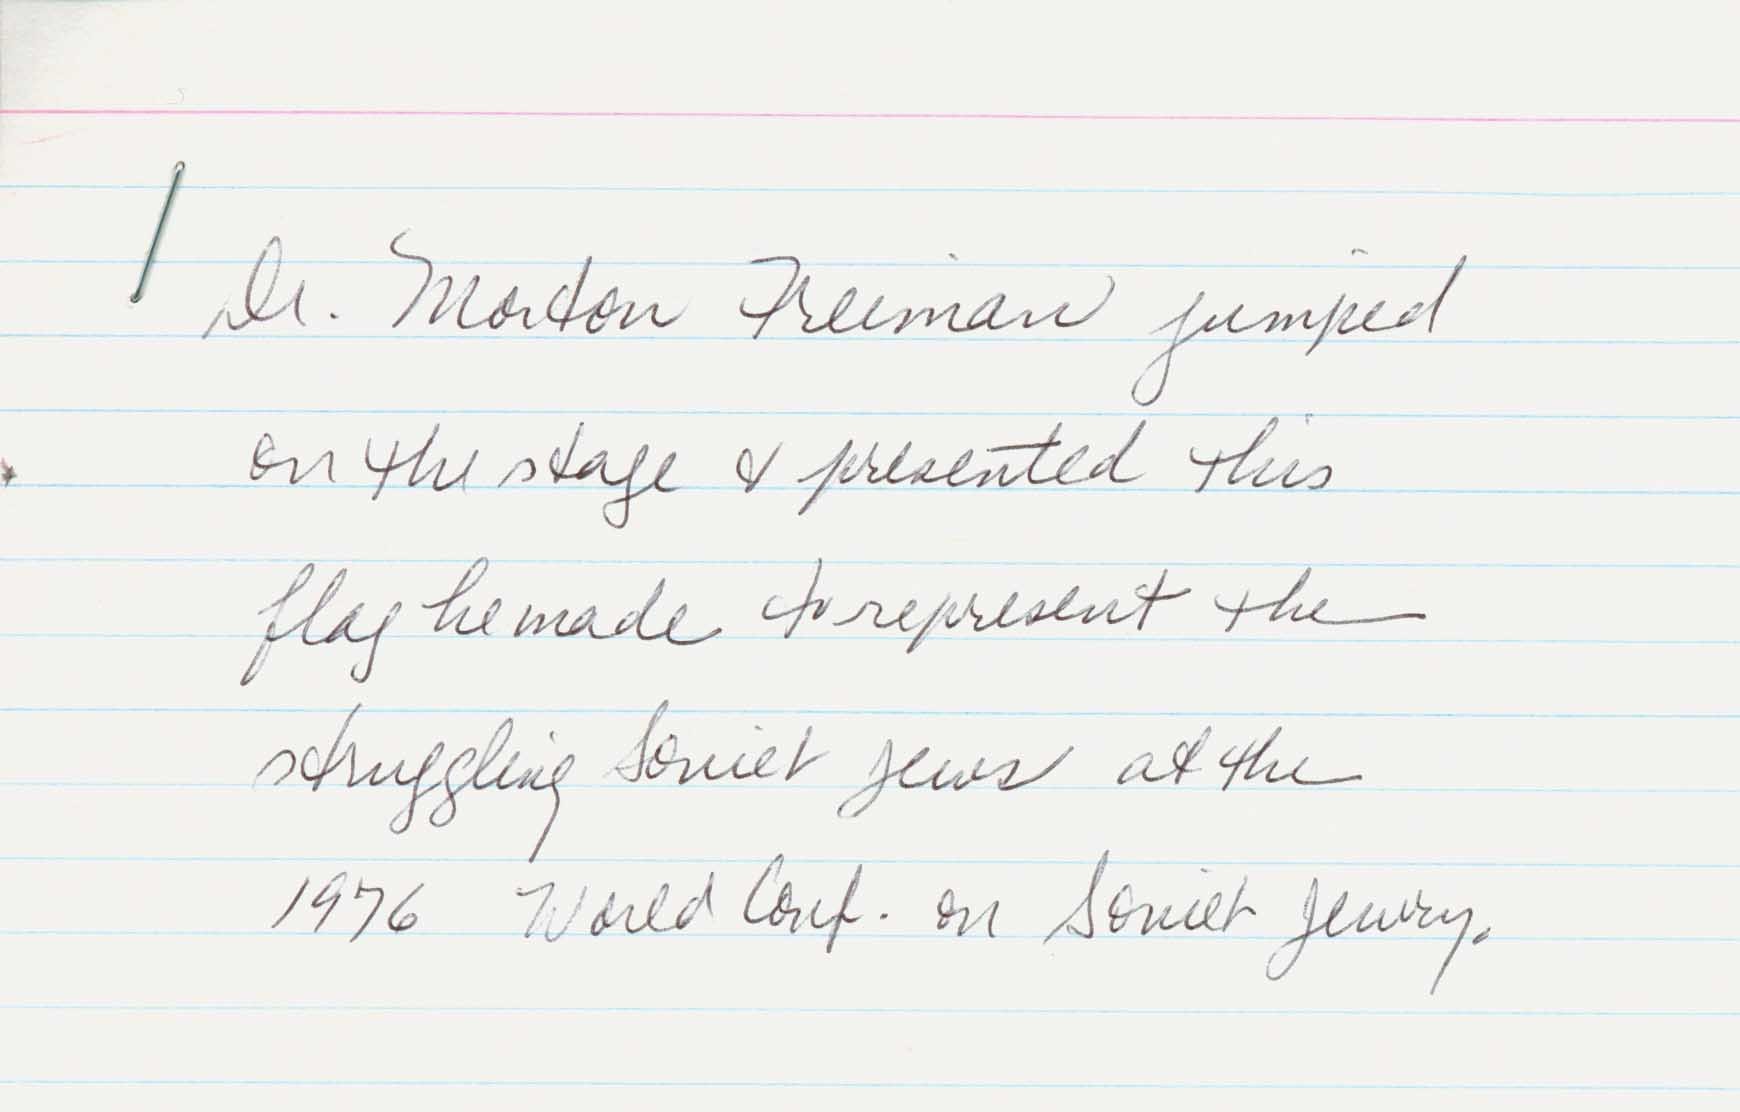 Dr. Morton Freiman jumped
on the stage & presented this
flag he made to represent the
struggling Soviet Jews at the
1976 World Conf. on Soviet Jewry.